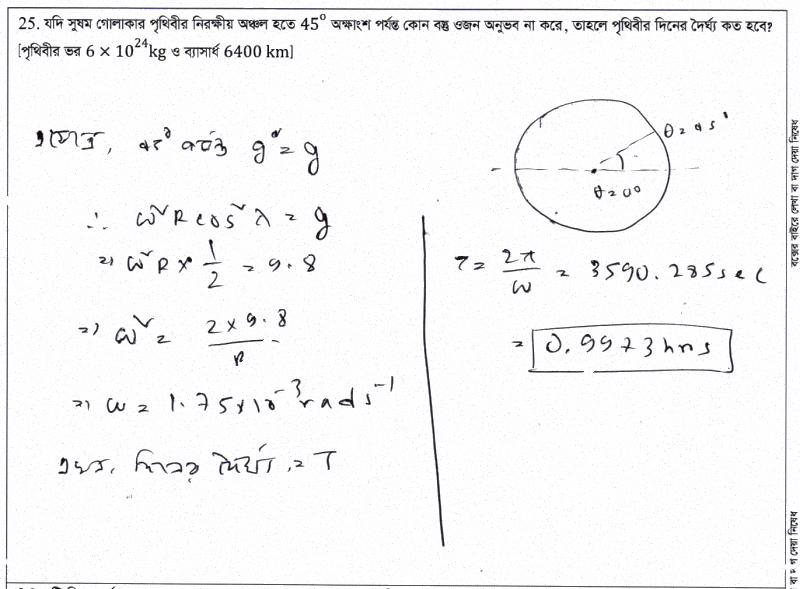 25. যদি সুষম গোলাকার পৃথিবীর নিরক্ষীয় অঞ্চল হতে 45° অক্ষাংশ পর্যন্ত কোন বস্তু ওজন অনুভব না করে, তাহলে পৃথিবীর দিনের দৈর্ঘ্য কত হবে?
[পৃথিবীর ভর 6 × 10²⁴kg ও ব্যাসার্ধ 6400 km]
45°
= g
θ = 45°
θ = 00
∴ ω²R cos²λ = g
⇒ ω²R × 1/2 = 9.8
⇒ ω² = 2 × 9.8 / R
⇒ ω = 1.75×10⁻³ rad s⁻¹
এখন, দিনের দৈর্ঘ্য, = T
T = 2π/ω = 3590.285 sec
= 0.9973 hrs
বক্সের বাইরে লেখা বা দাগ দেয়া নিষেধ
দেয়া নিষেধ